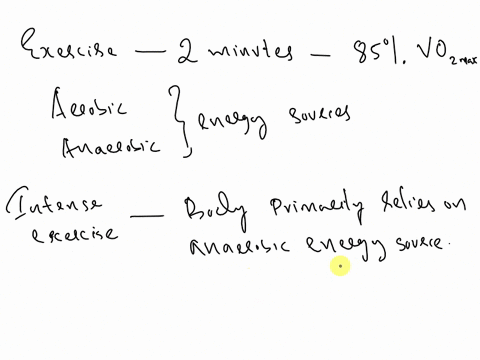 Exercise — 2 minutes — 85%. VO2max
Aerobic
Anaerobic } energy sources
Intense exercise — Body Primarily relies on
anaerobic energy source.